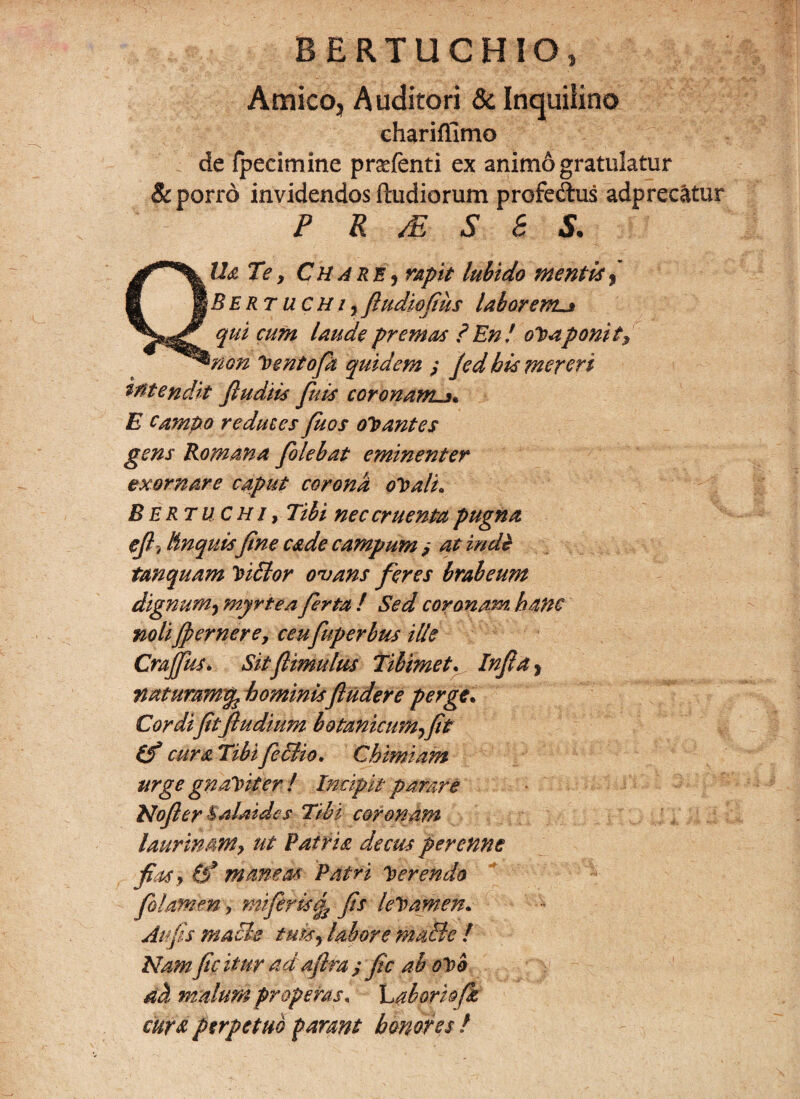 BERTUCHIO,
Amico, Auditori & Inquilino
chariſſimo
de ſpecimine præſenti ex animô gratulatur
& porrò invidendos ſtudiorum profectus adprecatur
P R Æ S E S.
QUæ Te, CHARE, rapit lubido mentis,
BERTUCHI, ſtudioſiùs laborem
qui cum laude premas? En! ovaponit,
non ventoſa quidem; ſed his mereri
intendit ſtudiis ſuis coronam.
E campo reduces ſuos ovantes
gens Romana ſolebat eminenter
exornare caput coronâ ovali.
BERTUCHI, Tibi nec cruenta pugna
eſt, linquis ſine cæde campum; at indè
tanquam victor ovans feres brabeum
dignum, myrtea ſerta! Sed coronam hanc
noli ſpernere, ceu ſuperbus ille
Craſſus. Sit ſtimulus Tibimet. Inſta,
naturamq; hominis ſtudere perge.
Cordi ſit ſtudium botanicum, ſit
& curæ Tibi ſectio. Chimiam
urge gnaviter! Incipit parare
Noſter Salaides Tibi coronam
laurinam, ut Patriæ decus perenne
fias, & maneas Patri verendo
ſolamen, miſerisq; ſis levamen.
Auſis macte tuis, labore macte!
Nam ſic itur ad aſtra; ſic ab ovô
ad malum properas. Laborioſæ
curæ perpetuò parant honores!